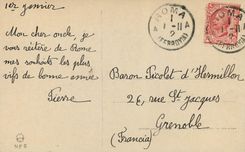 1er janvier
Mon cher oncle, je
vous réitère de Rome
mes souhaits les plus
vifs de bonne année
Pierre
ROMA
FERROVIA
Baron Picolet d'Hermillon
26, rue St-Jacques
Grenoble
(Francia)
NPG